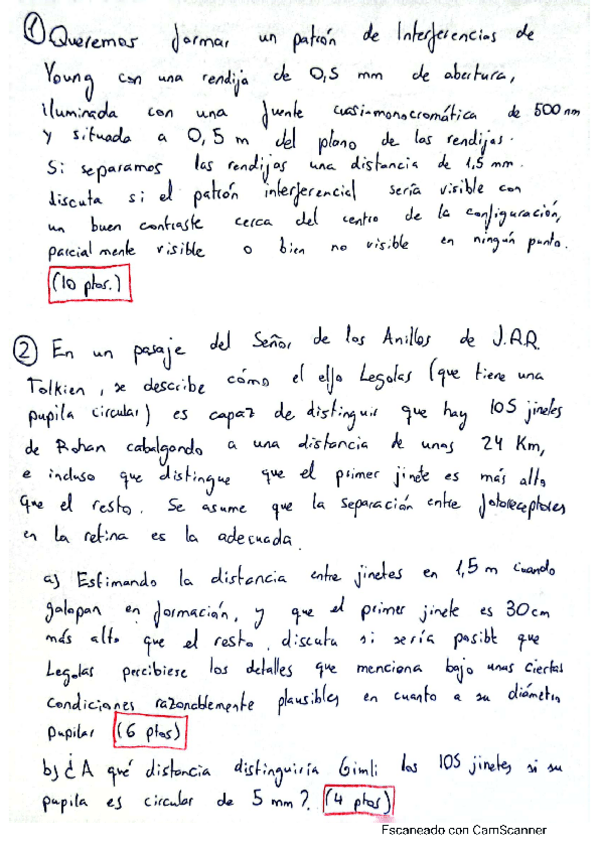 ① Queremos formar un patrón de Interferencias de
Young con una rendija de 0,5 mm de abertura,
iluminada con una fuente cuasi-monocromática de 500 nm
y situada a 0,5 m del plano de las rendijas.
Si separamos las rendijas una distancia de 1,5 mm.
discuta si el patrón interferencial sería visible con
un buen contraste cerca del centro de la configuración,
parcialmente visible o bien no visible en ningún punto.
(10 ptos.)
② En un pasaje del Señor de los Anillos de J.R.R.
Tolkien, se describe cómo el elfo Legolas (que tiene una
pupila circular) es capaz de distinguir que hay 105 jinetes
de Rohan cabalgando a una distancia de unos 24 Km,
e incluso que distingue que el primer jinete es más alto
que el resto. Se asume que la separación entre fotoreceptores
en la retina es la adecuada.
a) Estimando la distancia entre jinetes en 1,5 m cuando
galopan en formación, y que el primer jinete es 30 cm
más alto que el resto, discuta si sería posible que
Legolas percibiese los detalles que menciona bajo unas ciertas
condiciones razonablemente plausibles en cuanto a su diámetro
pupilar (6 ptos)
b) ¿A qué distancia distinguiría Gimli los 105 jinetes si su
pupila es circular de 5 mm? (4 ptos)
Escaneado con CamScanner